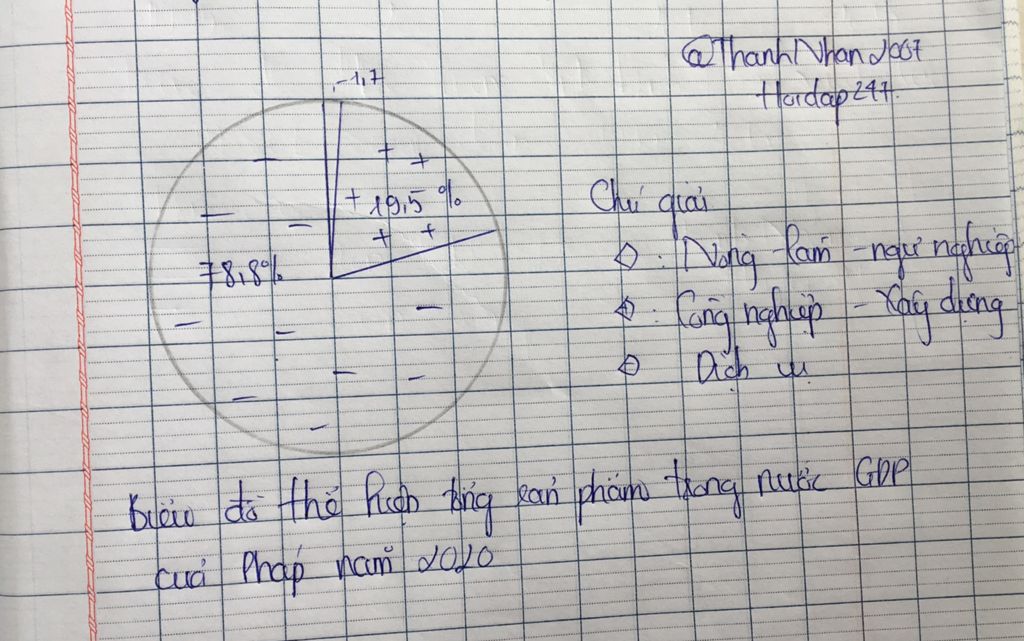 @ThanhNhan2007
Hoidap247.
1,7
+ +
+ 19,5%
+ +
78,8%
Chú giải
: Nông - lâm - ngư nghiệp
: Công nghiệp - Xây dựng
Dịch vụ
Biểu đồ thể hiện tổng sản phẩm trong nước GDP
của Pháp năm 2020